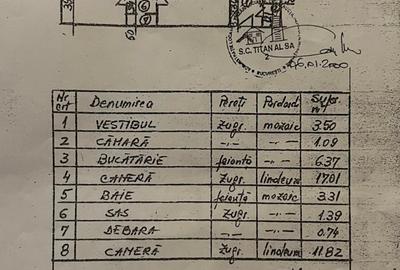 S.C. TITAN AL SA
2
BUCUREȘTI
06.01.2000
Nr. crt Denumirea Pereți Pardos. Supr. m²
1 VESTIBUL zugr. mozaic 3.50
2 CĂMARĂ -"- -"- 1.09
3 BUCĂTĂRIE faianță -"- 6.37
4 CAMERĂ zugr. linoleum 17.01
5 BAIE faianță mozaic 3.31
6 SAS zugr. -"- 1.39
7 DEBARA -"- -"- 0.74
8 CAMERĂ zugr. linoleum 11.82